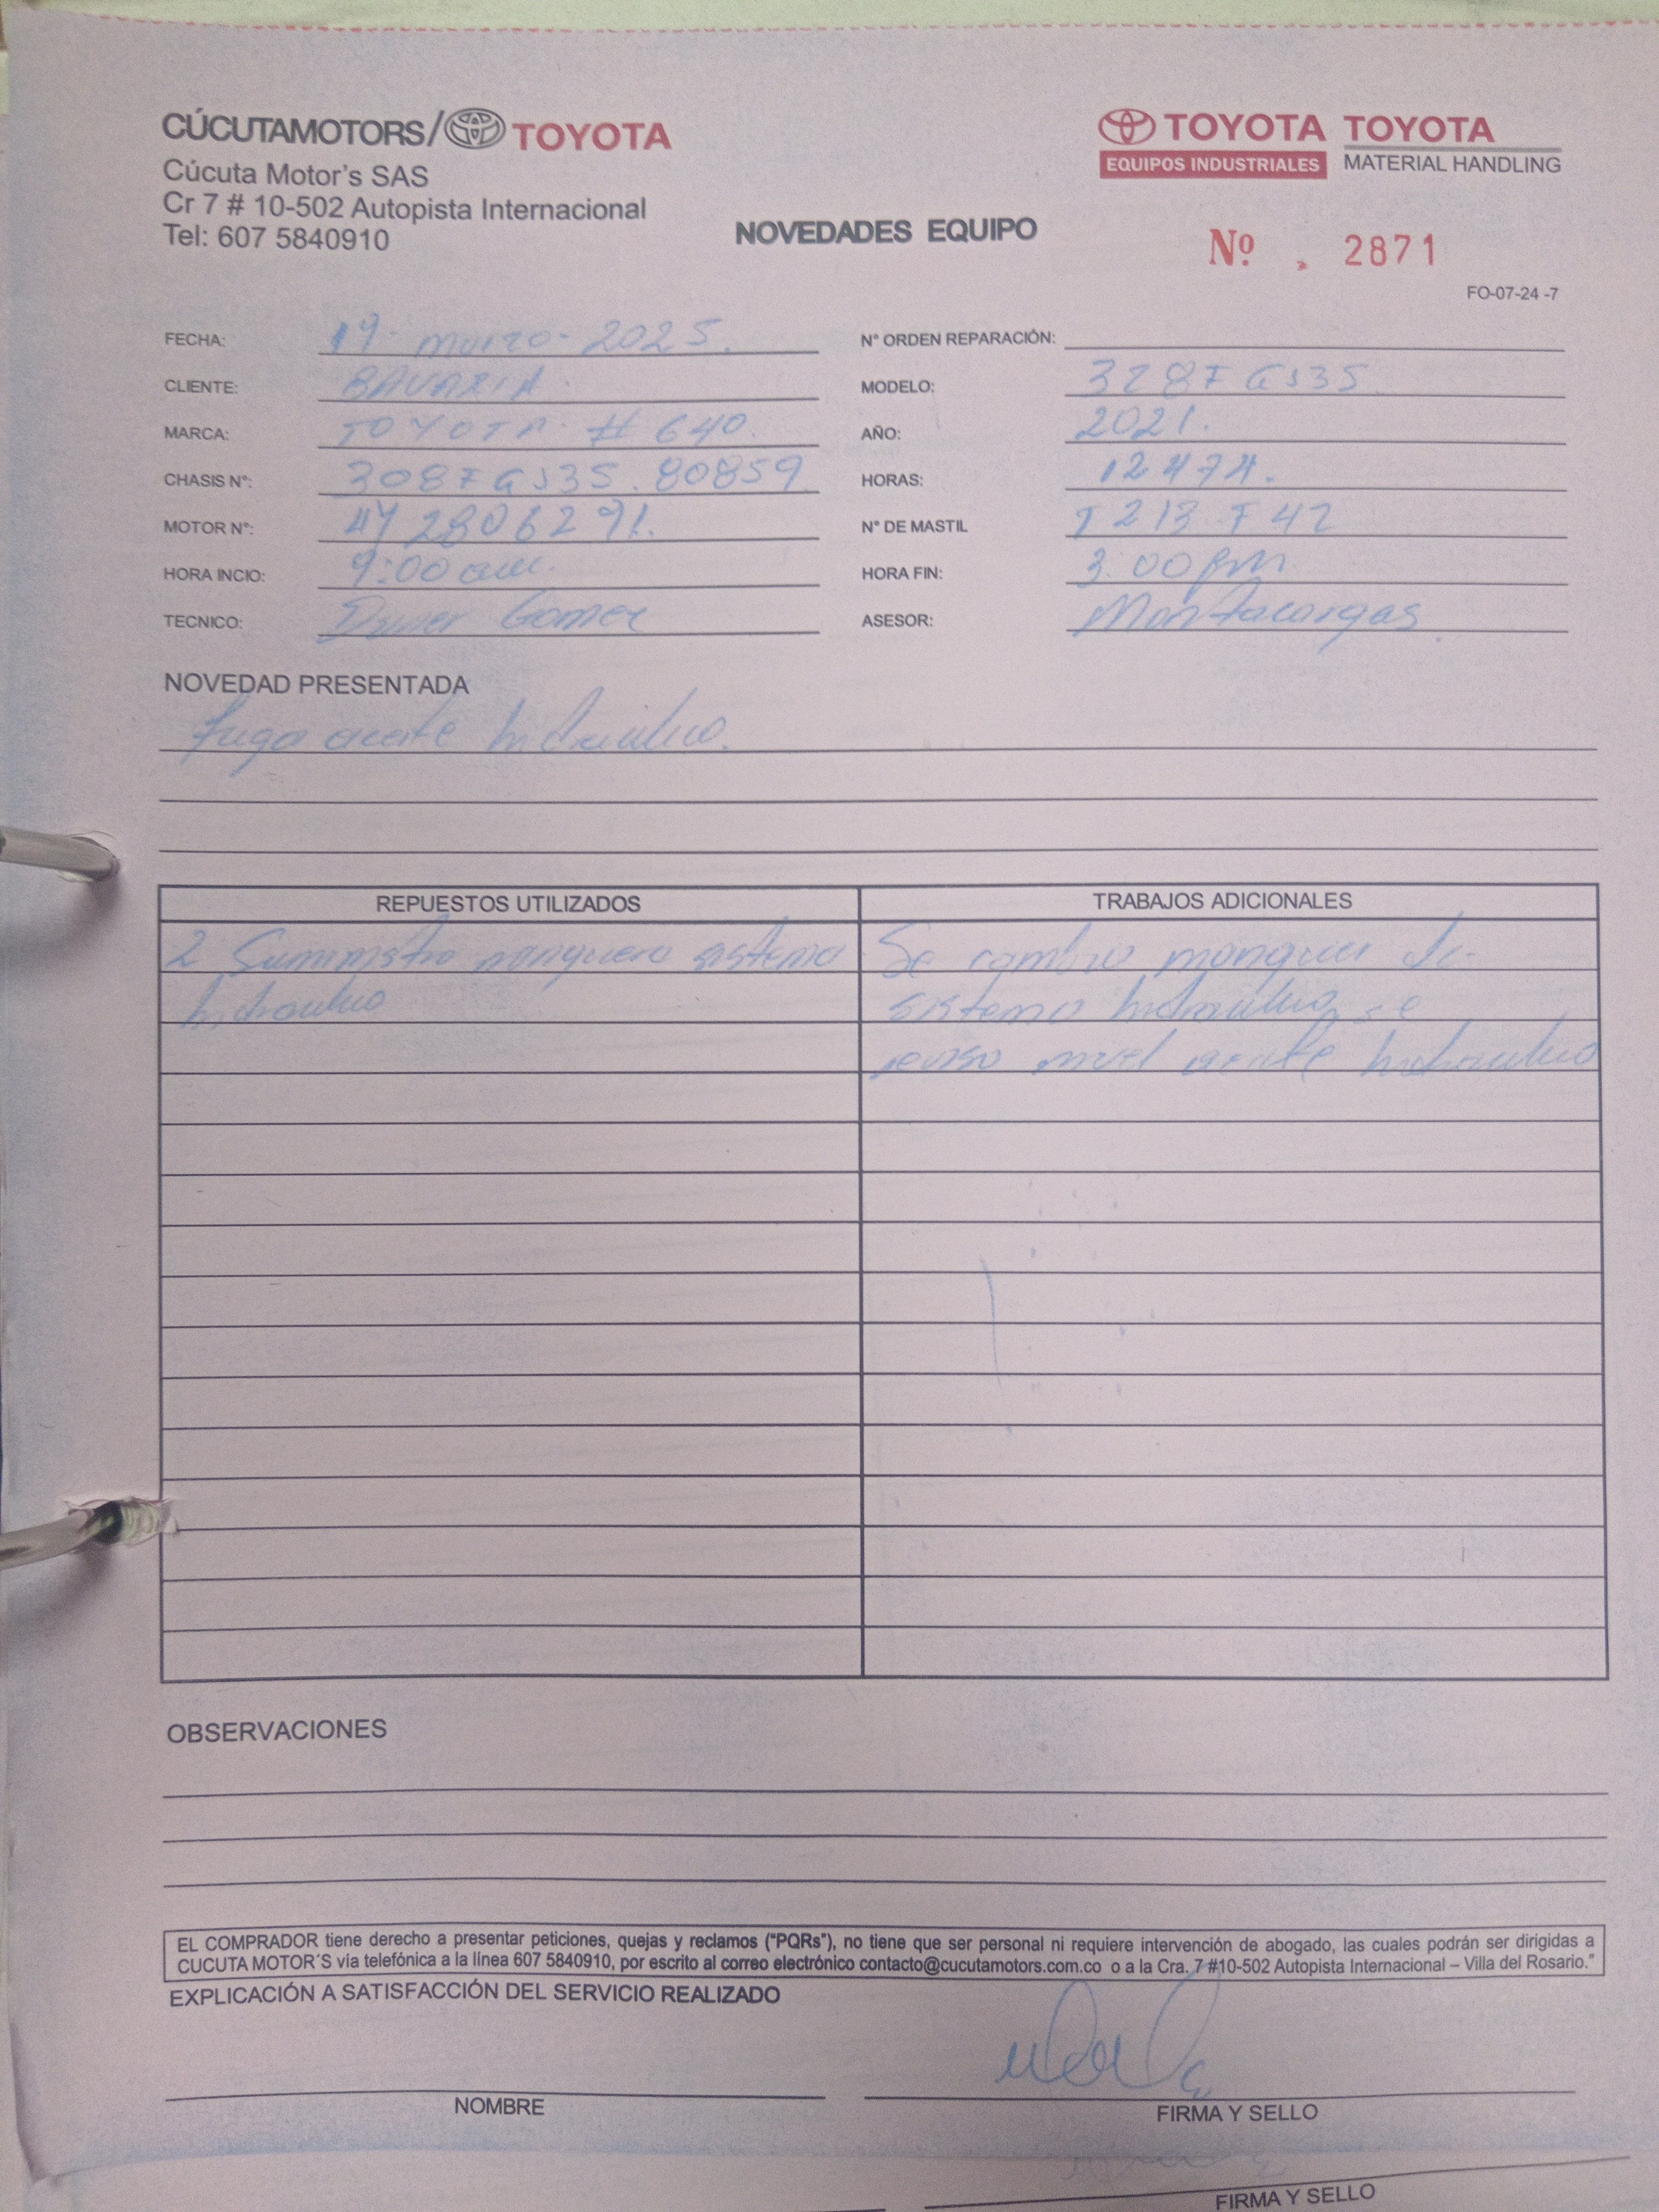 CÚCUTAMOTORS/ TOYOTA
TOYOTA EQUIPOS INDUSTRIALES
TOYOTA MATERIAL HANDLING
Cúcuta Motor's SAS
Cr 7 # 10-502 Autopista Internacional
Tel: 607 5840910
NOVEDADES EQUIPO
Nº. 2871
FO-07-24 -7
FECHA: 19- marzo- 2025.
N° ORDEN REPARACIÓN:
CLIENTE: BAVARIA.
MODELO: 328FGJ35
MARCA: TOYOTA # 640.
AÑO: 2021.
CHASIS N°: 308FGJ35.80859
HORAS: 12474.
MOTOR N°: 4Y2806291.
N° DE MASTIL
HORA INCIO: 9:00 am.
HORA FIN: 3:00 pm
TECNICO: Gomez
ASESOR: Montacargas.
NOVEDAD PRESENTADA
fuga aceite hidraulico.
REPUESTOS UTILIZADOS
TRABAJOS ADICIONALES
2 Suministro manguera sistema
hidraulico
Se cambio manguera de
sistema hidraulico, se
reviso nivel aceite hidraulico
OBSERVACIONES
EL COMPRADOR tiene derecho a presentar peticiones, quejas y reclamos ("PQRs"), no tiene que ser personal ni requiere intervención de abogado, las cuales podrán ser dirigidas a
CUCUTA MOTOR´S vía telefónica a la línea 607 5840910, por escrito al correo electrónico contacto@cucutamotors.com.co o a la Cra. 7 #10-502 Autopista Internacional – Villa del Rosario."
EXPLICACIÓN A SATISFACCIÓN DEL SERVICIO REALIZADO
NOMBRE
FIRMA Y SELLO
FIRMA Y SELLO